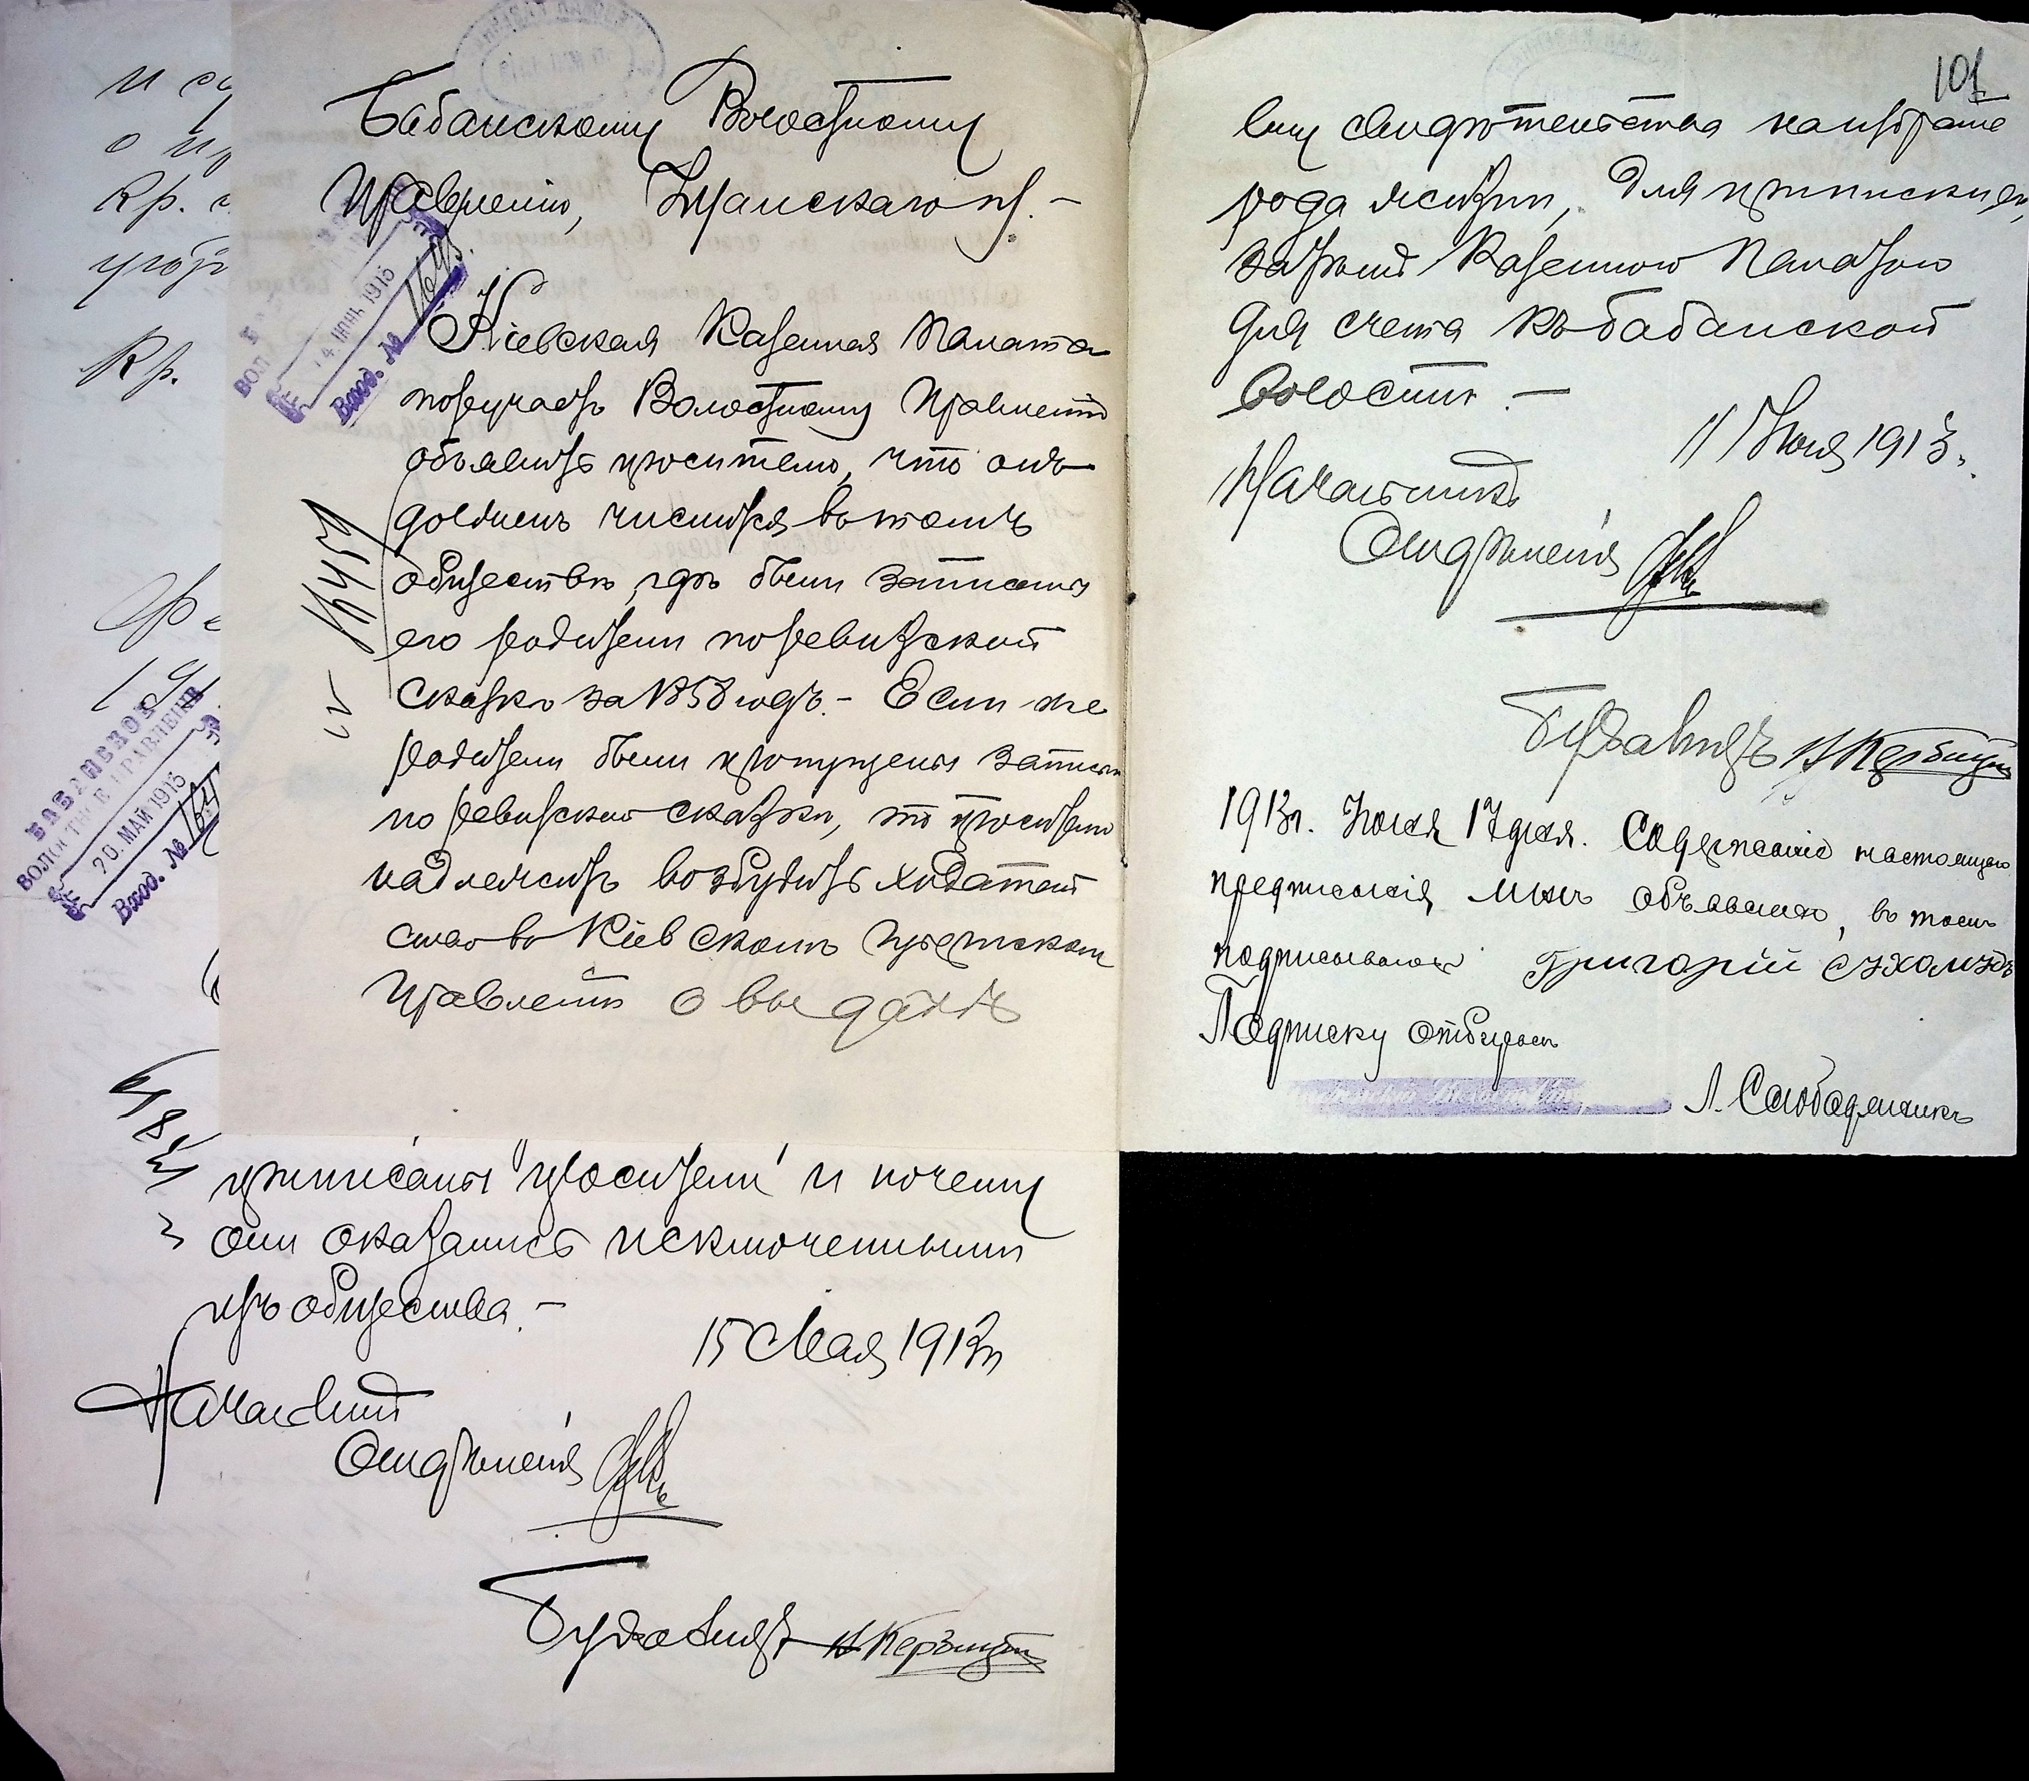 Бабанскому Волостному
Правленію, Уманскаго у.-
Кіевская Казенная Палата
поручаетъ Волостному Правленію
объявить просителю, что онъ
долженъ числиться въ томъ
обществѣ, гдѣ были записаны
его родители по ревизской
сказкѣ за 1858 годъ.- Если же
родители были пропущены записью
по ревизской сказкѣ, то просителю
надлежитъ возбудить ходатай
ство въ Кіевскомъ Губернском
Правленіи о выдачѣ
14 ІЮНЬ 1913
Вход. №
БАБАНСКОЕ
ВОЛОСТНОЕ ПРАВЛЕНІЕ
20. МАЙ 1913
Вход. №
приписаны просители и почему
они оказались исключенными
изъ общества.-
15 Мая 1913 г.
Начальникъ
Отдѣленія
Бухгалтеръ
101
ему свидѣтельства на избраніе
рода жизни, для приписки его,
затѣмъ Казенною Палатою
для счета къ Бабанской
волости.-
11 Іюня 1913 г.
Начальникъ
Отдѣленія
Бухгалтеръ
1913 г. Іюля 17 дня. Содержаніе настоящаго
предписанія мнѣ объявлено, въ томъ
подписываюсь Григорій Сухомудъ
Подписку отбиралъ
Л. Слободяникъ